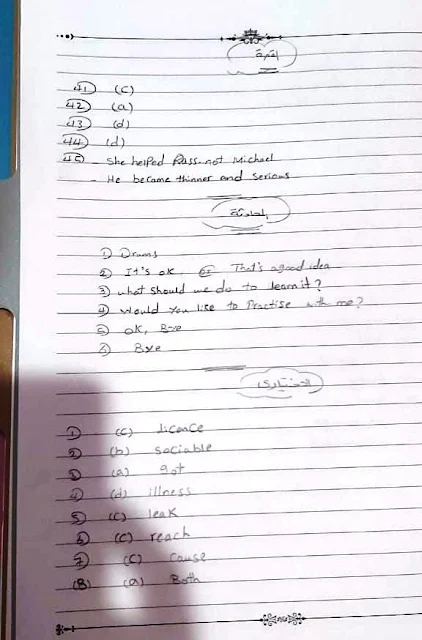 القطعة
41) (c)
42) (a)
43) (d)
44) (d)
45 - She helped Russ not Michael
- He became thinner and serious
المحادثة
1) Drums
2) It's ok. or That's a good idea
3) what should we do to learn it?
4) would you like to Practise with me?
5) ok, Bye
6) Bye
الاختياري
1) (c) licence
2) (b) sociable
3) (a) got
4) (d) illness
5) (c) leak
6) (c) reach
7) (c) cause
(8) (a) Both